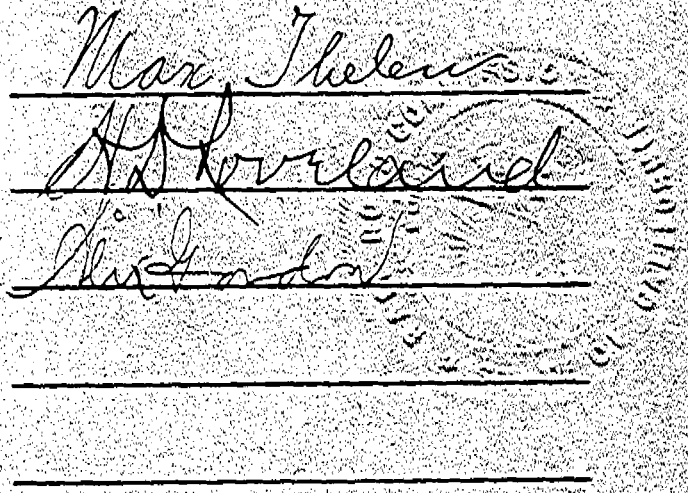 Max Thelen
H. D. Loveland
Alex Gordon